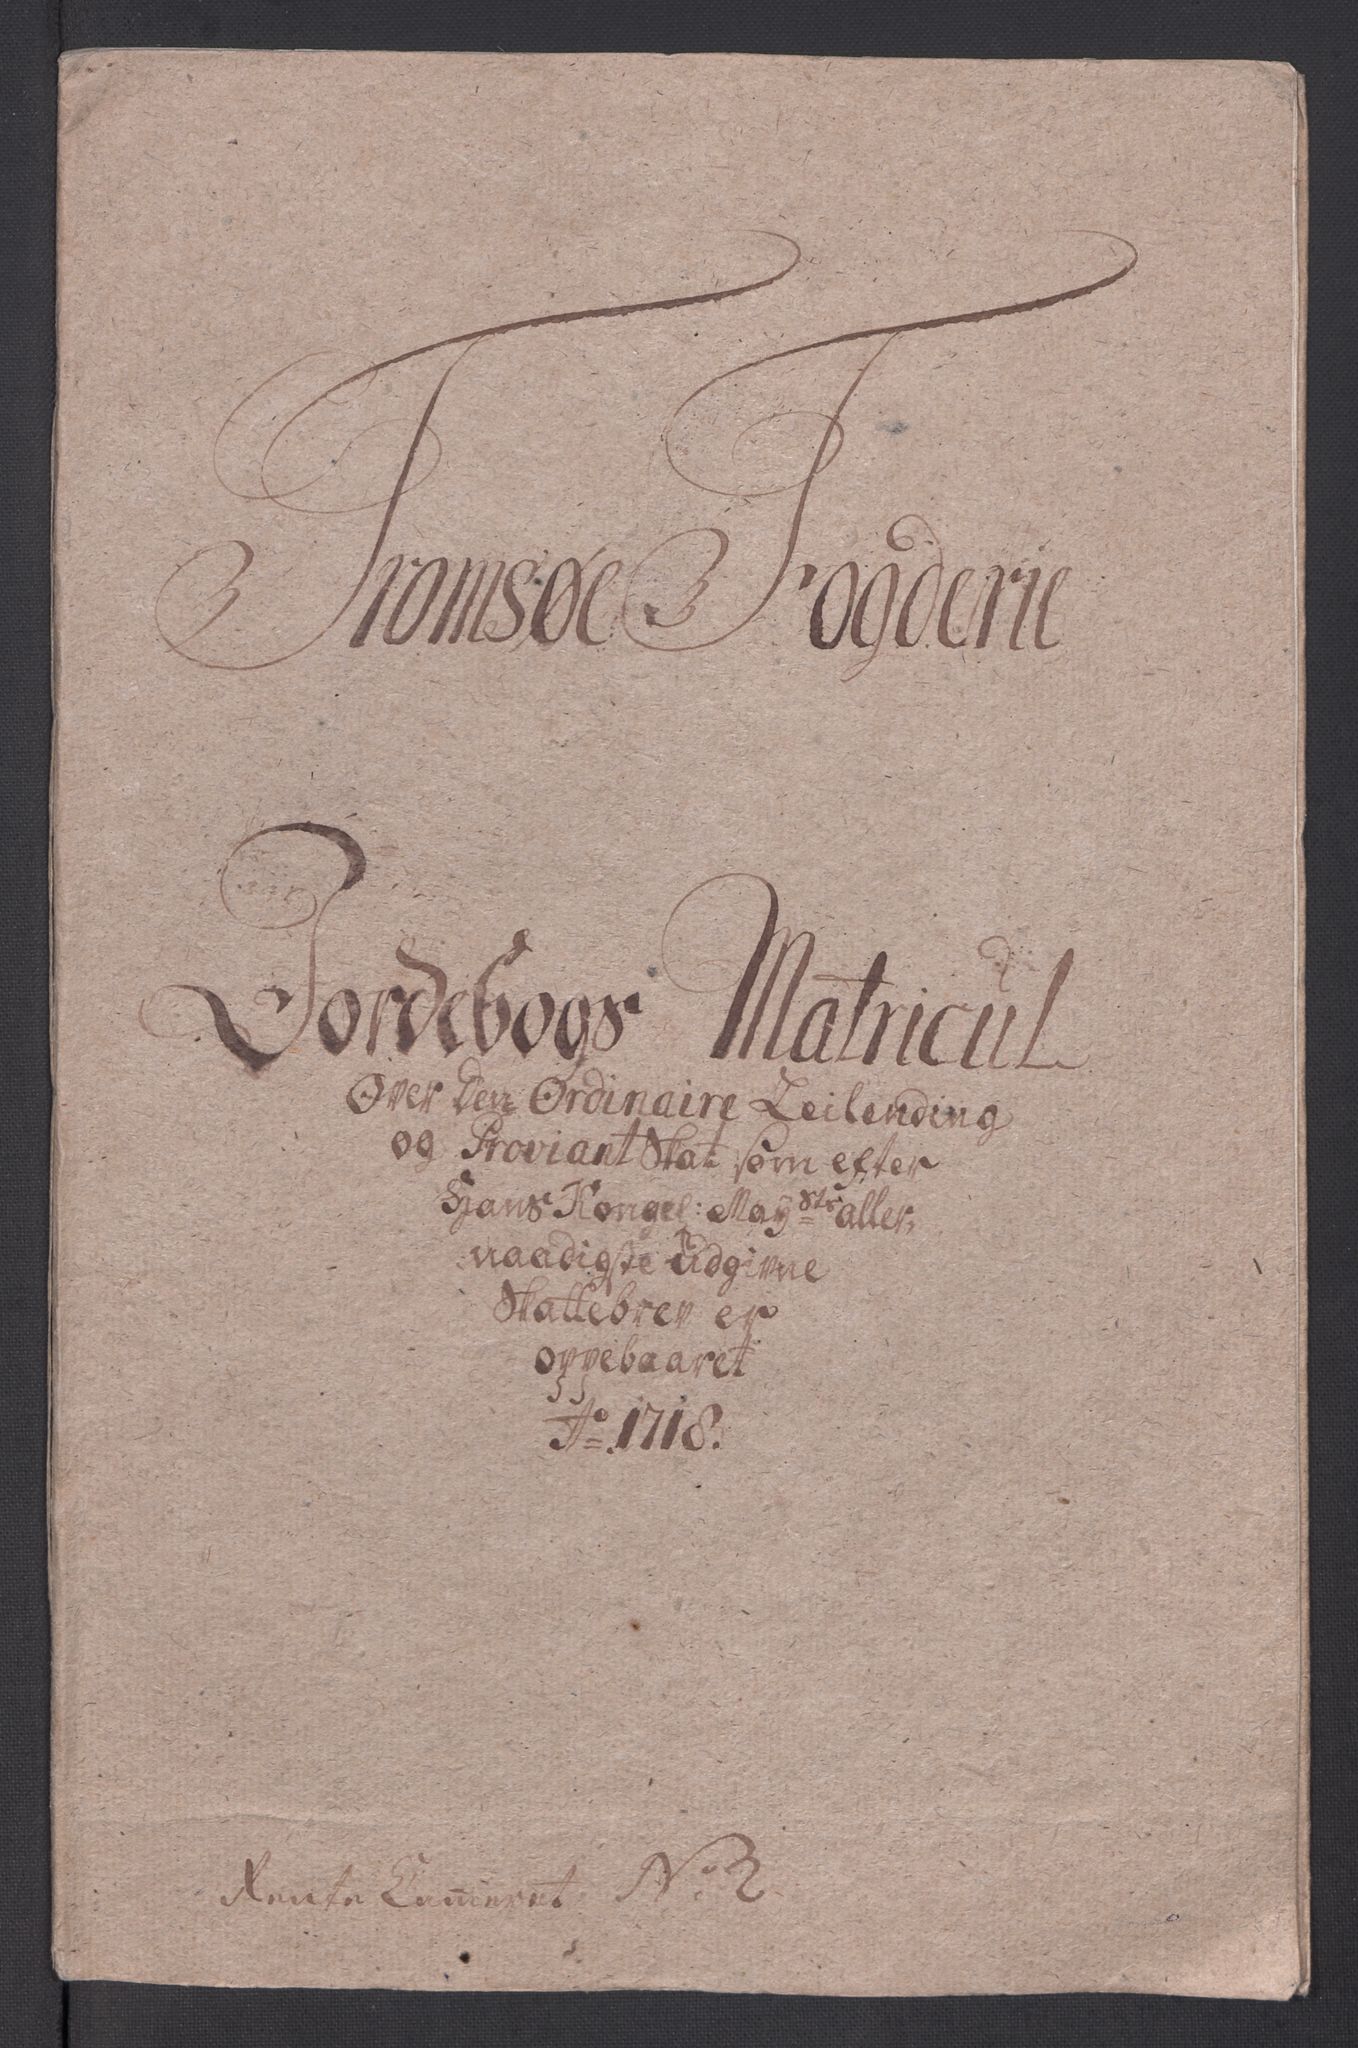 Tromsøe Fogderie
Jordebogs Matricul
Over den Ordinaire Leilending
og Proviant Skat som efter
Hans Kongel: May<sup>sts</sup> aller,
naadigste Udgivne
Skattebrev er
oppebaaret
A<sup>o</sup> 1718.
Rente Cameret N<sup>o</sup> 2